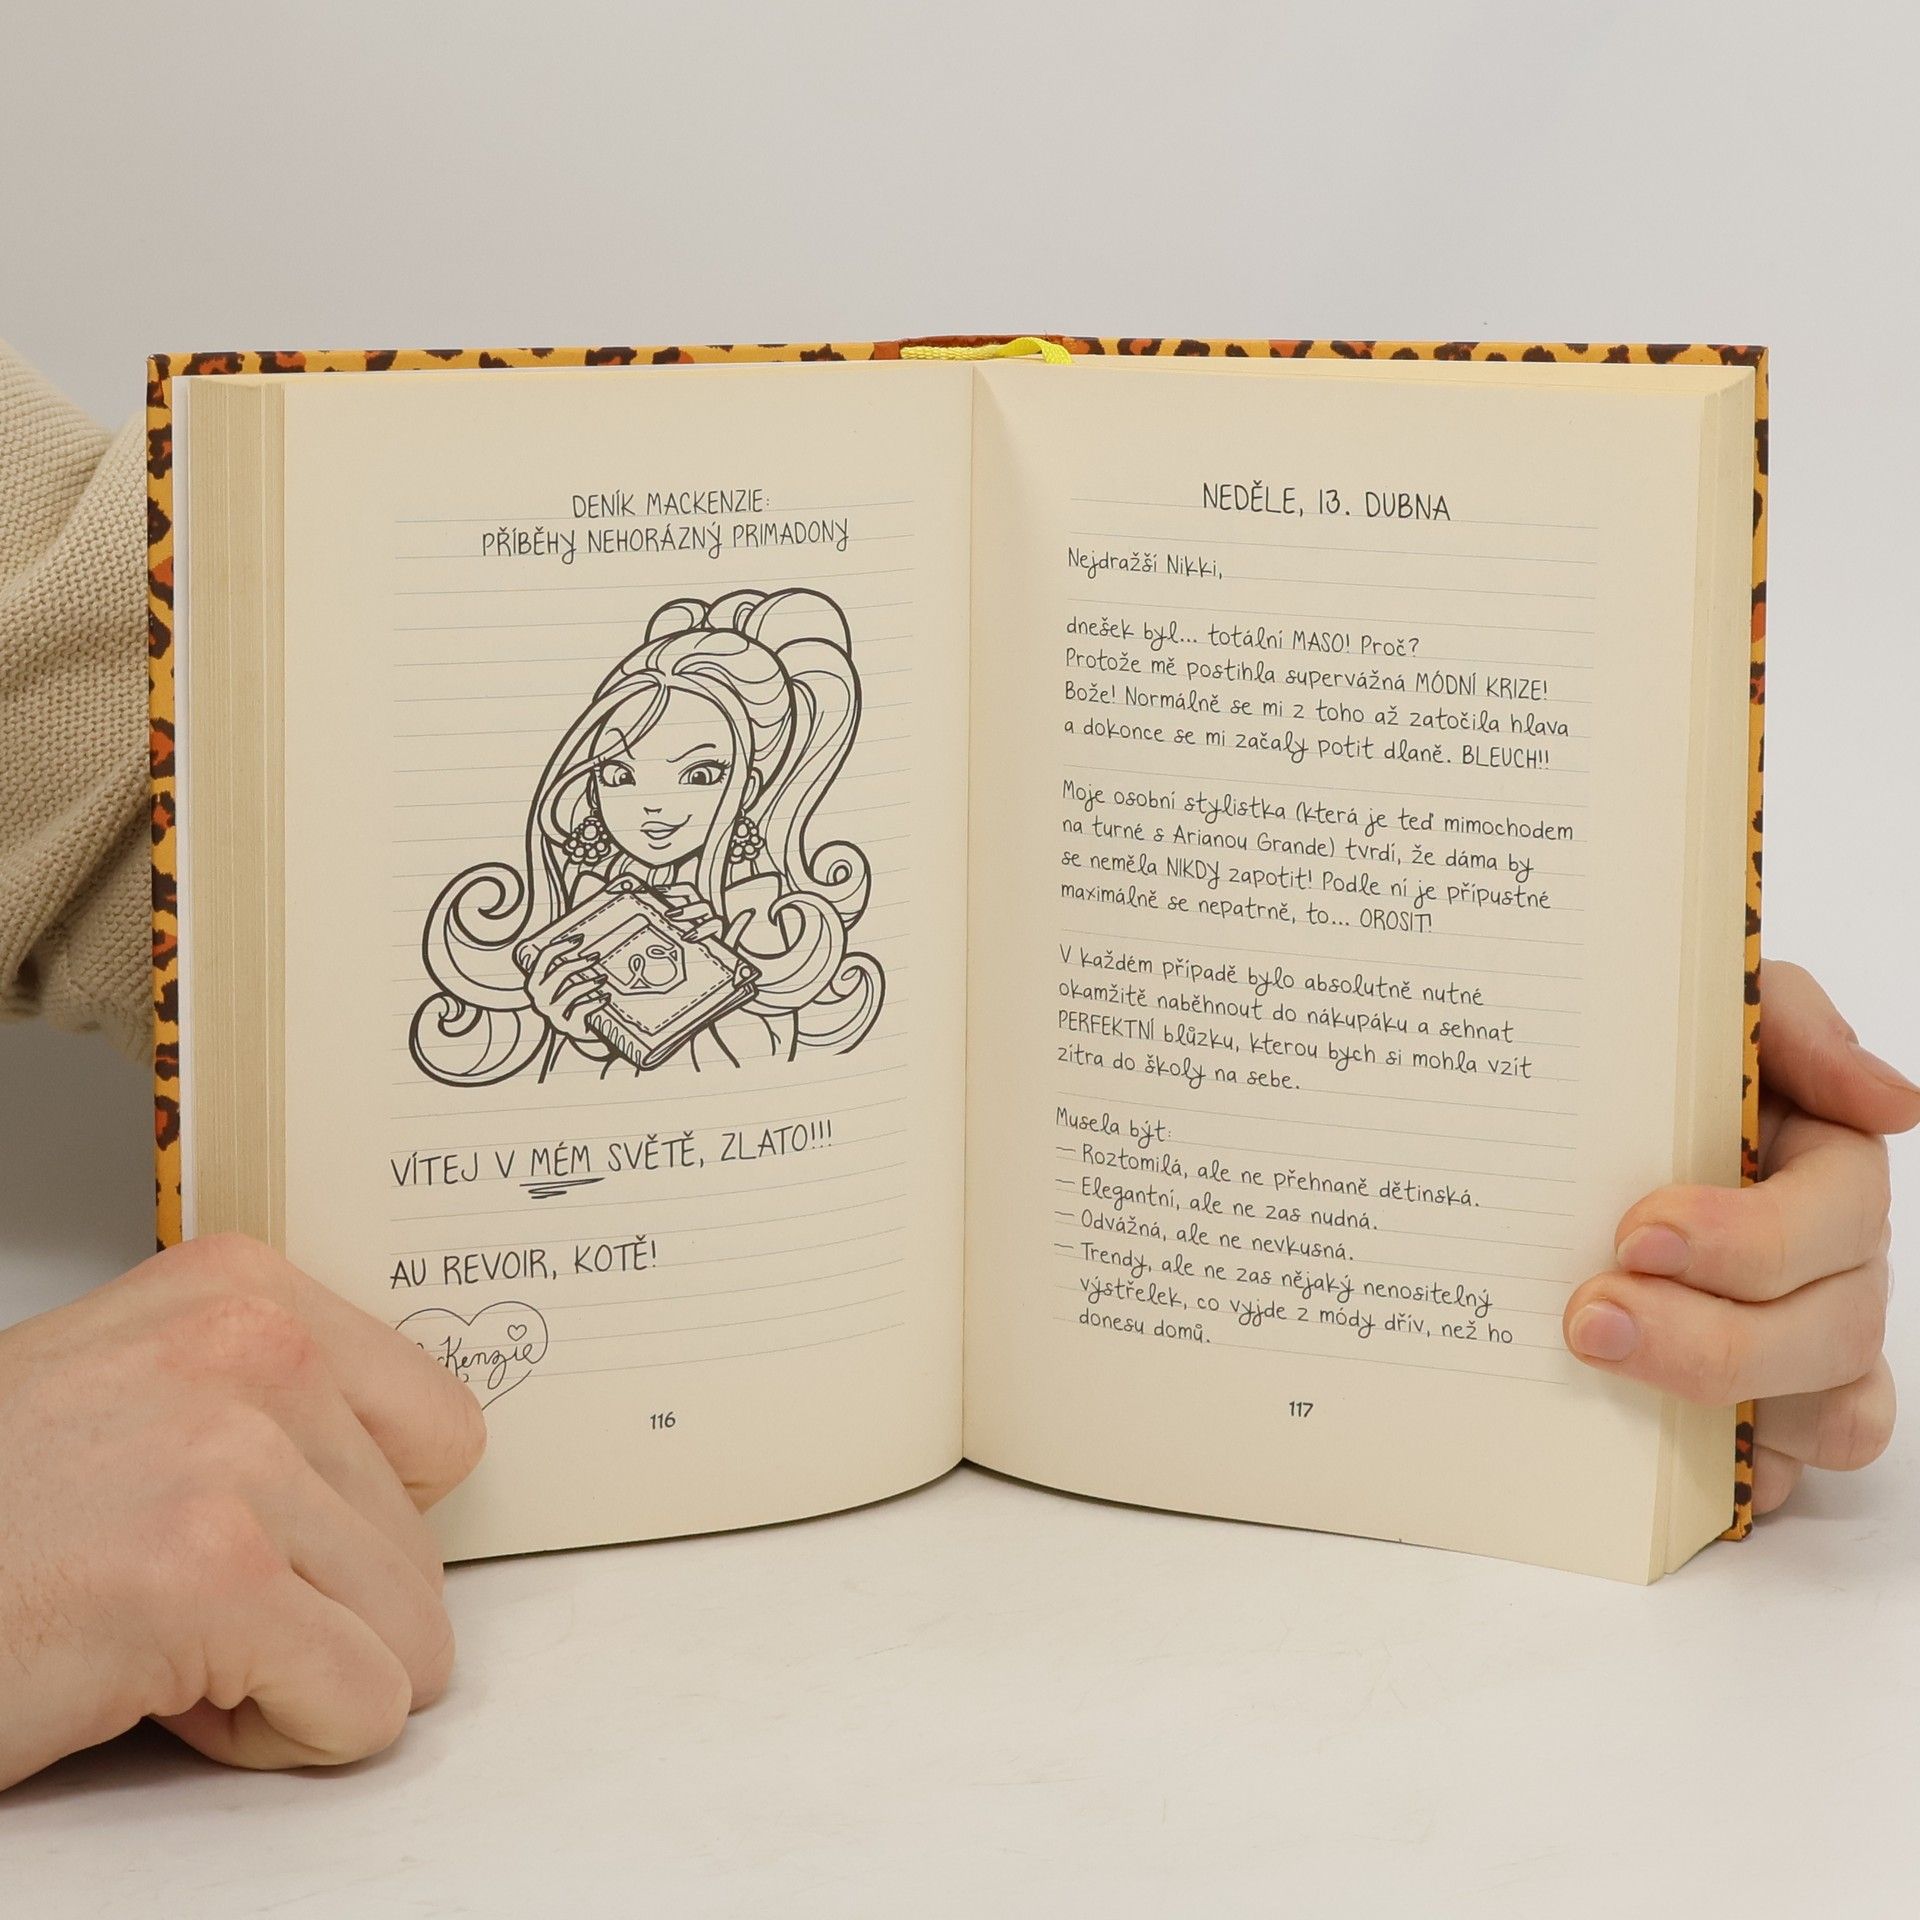 DENÍK MACKENZIE:
PŘÍBĚHY NEHORÁZNÝ PRIMADONY
VÍTEJ V MÉM SVĚTĚ, ZLATO!!!
AU REVOIR, KOTĚ!
116
NEDĚLE, 13. DUBNA
Nejdražší Nikki,
dnešek byl... totální MASO! Proč?
Protože mě postihla supervážná MÓDNÍ KRIZE!
Bože! Normálně se mi z toho až zatočila hlava
a dokonce se mi začaly potit dlaně. BLEUCH!!
Moje osobní stylistka (která je teď mimochodem
na turné s Arianou Grande) tvrdí, že dáma by
se neměla NIKDY zapotit! Podle ní je přípustné
maximálně se nepatrně, to... OROSIT!
V každém případě bylo absolutně nutné
okamžitě naběhnout do nákupáku a sehnat
PERFEKTNÍ blůzku, kterou bych si mohla vzít
zítra do školy na sebe.
Musela být:
— Roztomilá, ale ne přehnaně dětinská.
— Elegantní, ale ne zas nudná.
— Odvážná, ale ne nevkusná.
— Trendy, ale ne zas nějaký nenositelný
výstřelek, co vyjde z módy dřív, než ho
donesu domů.
117